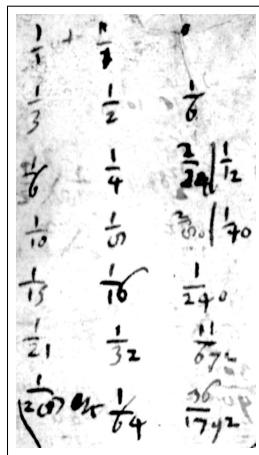 1/1 1/1
1/3 1/2 1/6
1/6 1/4 2/24 | 1/12
1/10 1/8 2/80 | 1/40
1/15 1/16 1/240
1/21 1/32 11/672
1/64